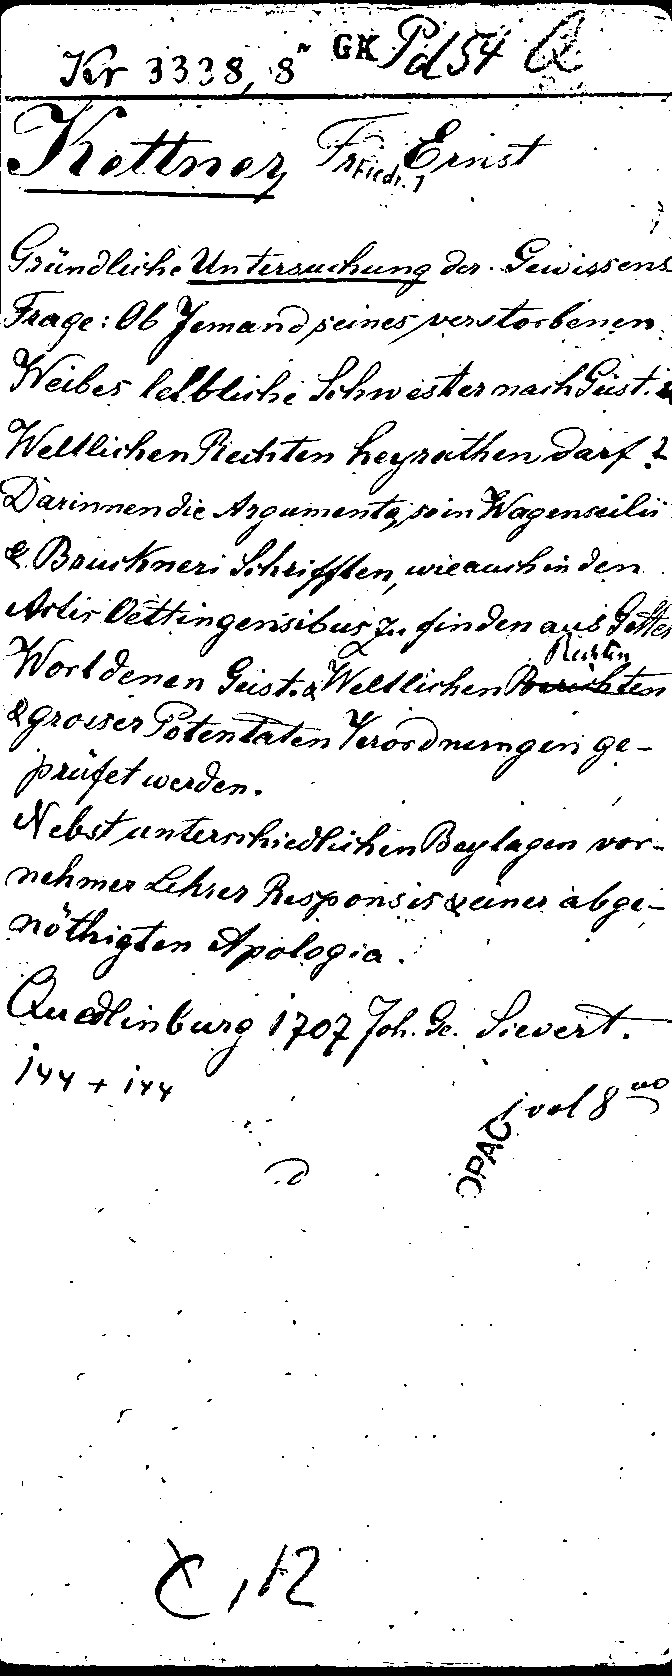 Kr 3338, 8° GK Pd 54 Q
Kettner, Fr. Ernst
Friedr. 1
Gründliche Untersuchung der Gewissens
Frage: Ob Jemand seines verstorbenen
Weibes leibliche Schwester nach Geist. &
Weltlichen Rechten heyrathen darf?
Darinnen die Argumenta, so in Wagenseilii
& Bruckneri Schrifften, wie auch in den
Actis Oettingensibus zu finden aus Gottes
Rechten
Wort denen Geist. & Weltlichen Berichten
& grosser Potentaten Verordnungen ge-
prüfet werden.
Nebst unterschiedlichen Beylagen vor-
nehmer Lehrer Responsis & einer abge-
nöthigten Apologia.
Quedlinburg 1707 Joh. Ge. Sievert.
144 + 144
1 vol 8 vo
OPAC
C, 12